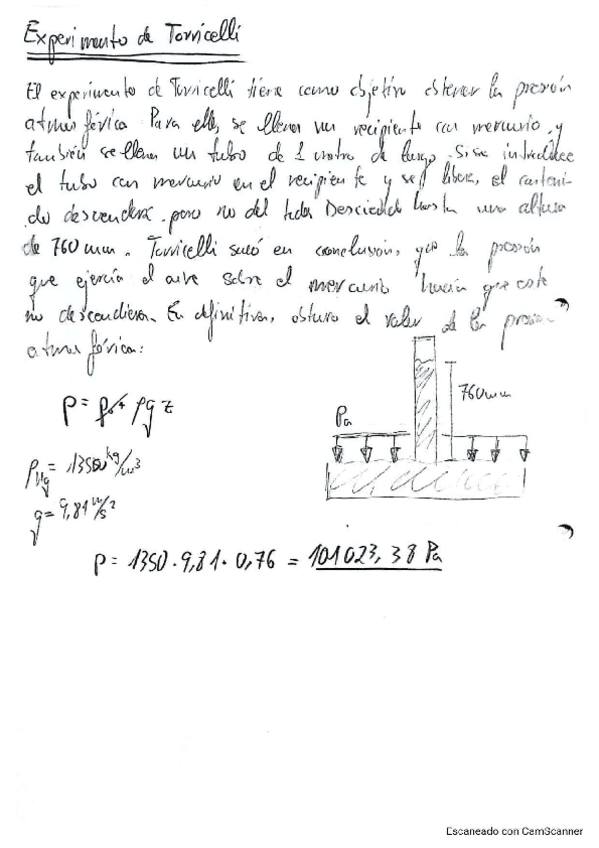 Experimento de Torricelli
El experimento de Torricelli tiene como objetivo obtener la presión
atmosférica. Para ello, se llena un recipiente con mercurio, y
también se llena un tubo de 1 metro de largo. Si se introduce
el tubo con mercurio en el recipiente y se libera, el conteni-
do descenderá, pero no del todo. Desciende hasta una altura
de 760 mm. Torricelli sacó en conclusión, que la presión
que ejercía el aire sobre el mercurio hacía que este
no descendiera. En definitiva, obtuvo el valor de la presión
atmosférica:
760mm
P = p₀ + ρ g z
Pa
ρHg = 13500 kg/m³
g = 9,81 m/s²
P = 1350 · 9,81 · 0,76 = 101023,38 Pa
Escaneado con CamScanner